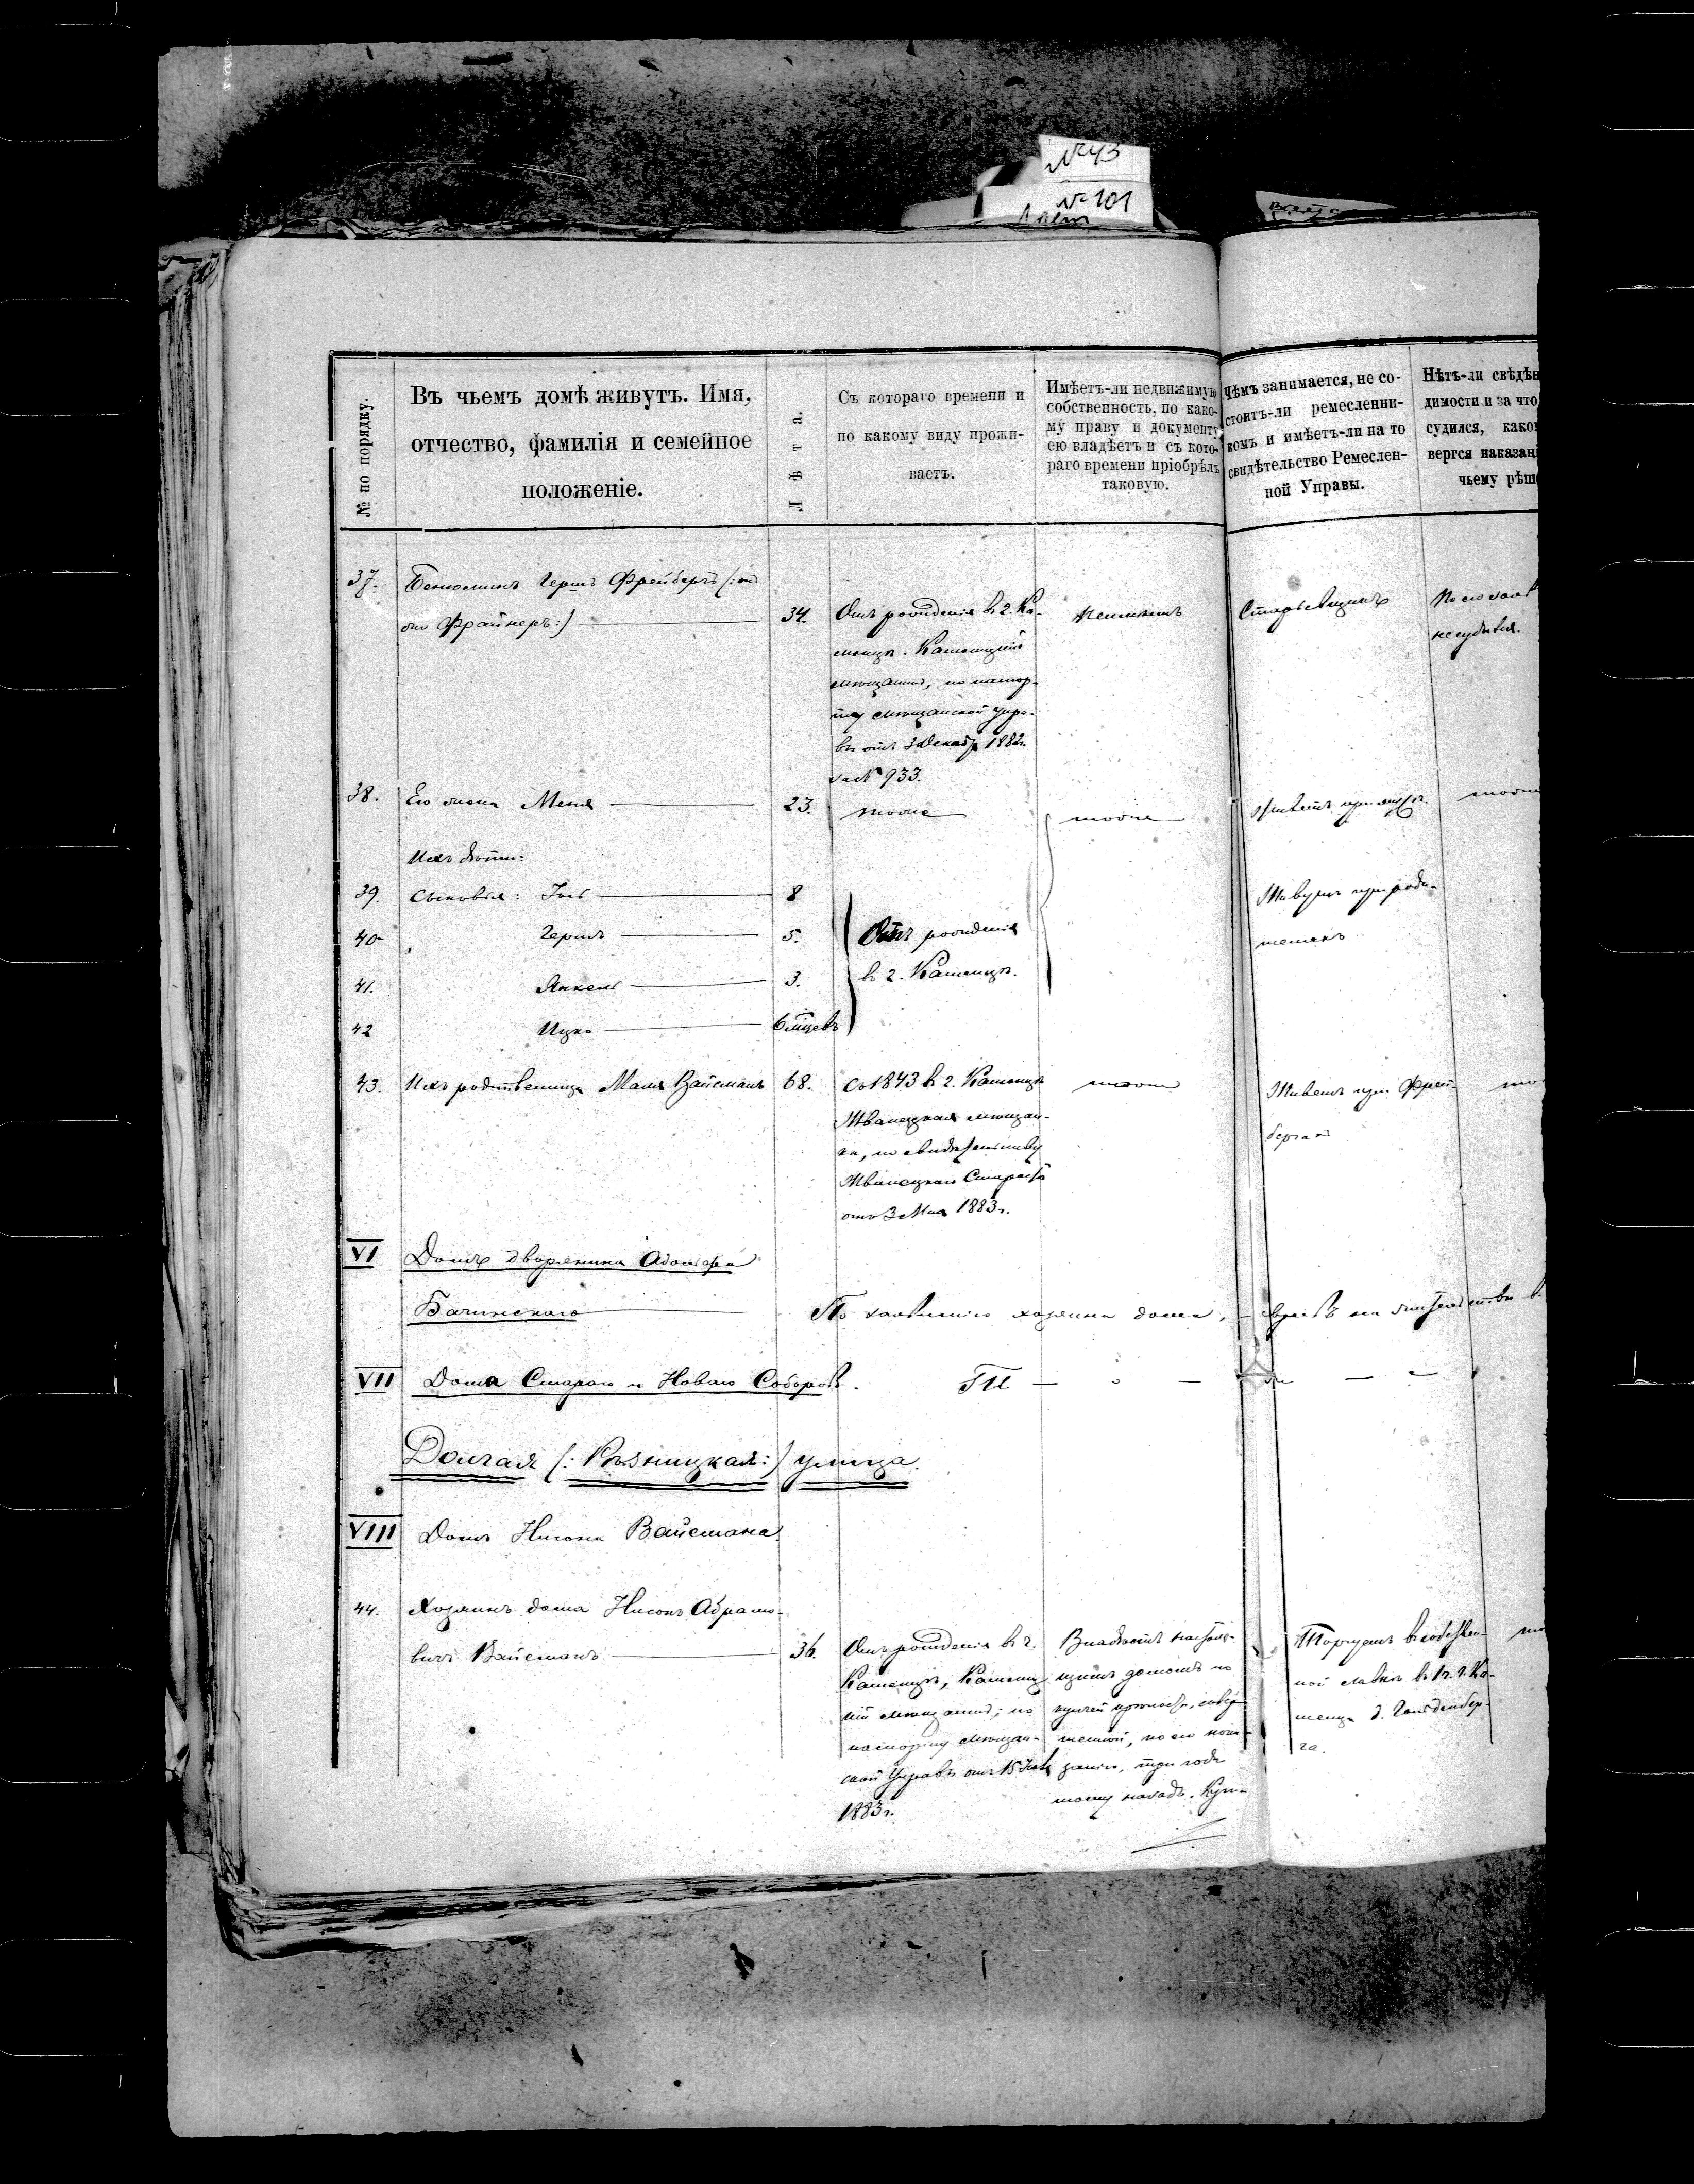 №43
№101
№ по порядку.
Въ чьемъ домѣ живутъ. Имя,
отчество, фамилія и семейное
положеніе.
Лѣта.
Съ котораго времени и
по какому виду прожи-
ваетъ.
Имѣетъ-ли недвижимую
собственность, по како-
му праву и документу
ею владѣетъ и съ кото-
раго времени пріобрѣлъ
таковую.
Чѣмъ занимается, не со-
стоитъ-ли ремесленни-
комъ и имѣетъ-ли на то
свидѣтельство Ремеслен-
ной Управы.
Нѣтъ-ли свѣдѣн
димости и за что
судился, како
вергся наказан
чьему рѣш
37. Беньюминъ Гершъ Фрейбергъ (:онъ
же Фрайнеръ:) 34.
Отъ рожденія въ г. Ка-
менцѣ. Каменецкій
мѣщанинъ, по паспор-
ту мѣщанской упра-
вы отъ 3 Декабр 1882г.
за № 933.
Неимѣетъ
Старьевщикъ
несудился.
38. Его жена Меня 23. тоже тоже
Живетъ при мужѣ. тоже
Ихъ дѣти:
39. Сыновья: Іось 8
40 Гершъ 5.
41. Янкель 3.
42 Ицко 6 мѣцевъ
Отъ рожденія
въ г. Каменцѣ.
Живутъ при роди-
теляхъ
43. Ихъ родственница Маля Вайсманъ 68.
Съ 1843 въ г. Каменцѣ
Жванецкая мѣщан-
ка, по свидѣтельству
Жванецкаго Старосты
отъ 3 Мая 1883г.
тоже
Живетъ при Фрей-
бергахъ
VI Домъ дворянина Адольфа
Бачинскаго
По заявленію хозяина дома, — евреевъ на жительствѣ
VII Дома Стараго и Новаго Соборовъ.
Долгая (: Рѣзницкая:) улица.
VIII Домъ Нисона Вайсмана.
44. Хозяинъ дома Нисонъ Абрамо-
вичъ Вайсманъ 36.
Отъ рожденія въ г.
Каменцѣ, Каменец
кій мѣщанинъ, по
паспорту мѣщан-
ской Управы отъ 15
1883г.
Владѣетъ настоя-
щимъ домомъ по
купчей крѣпости, совер-
шенной, по его пока-
занію, три года
тому назадъ. Куп-
Торгуетъ въ собствен-
ной лавкѣ въ 1 ч. г. Ка-
менца д. Гольденбер-
га.